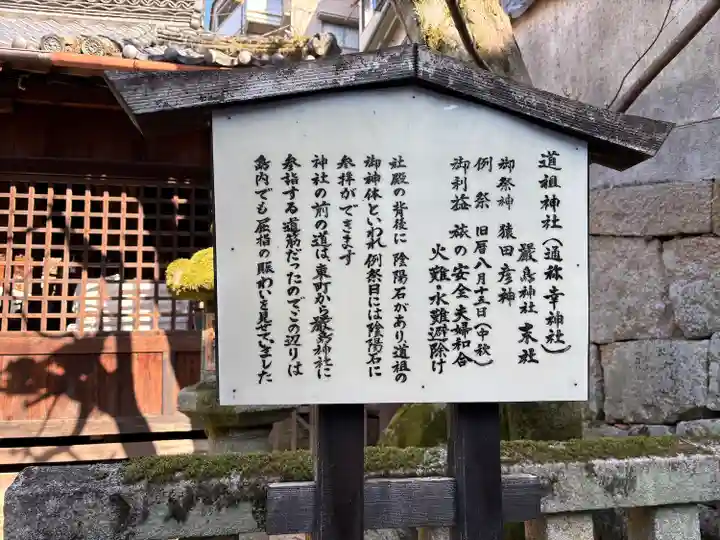 道祖神社(通称 幸神社)
厳島神社 末社
御祭神 猿田彦神
例祭 旧暦八月十五日(中秋)
御利益 旅の安全・夫婦和合
火難・水難厄除け
社殿の背後に陰陽石があり、道祖の
御神体といわれ例祭日には陰陽石に
参拝ができます
神社の前の道は、東町から厳島神社に
参指する道筋だったのでこの辺りは
島内でも屈指の賑わいを見せていました